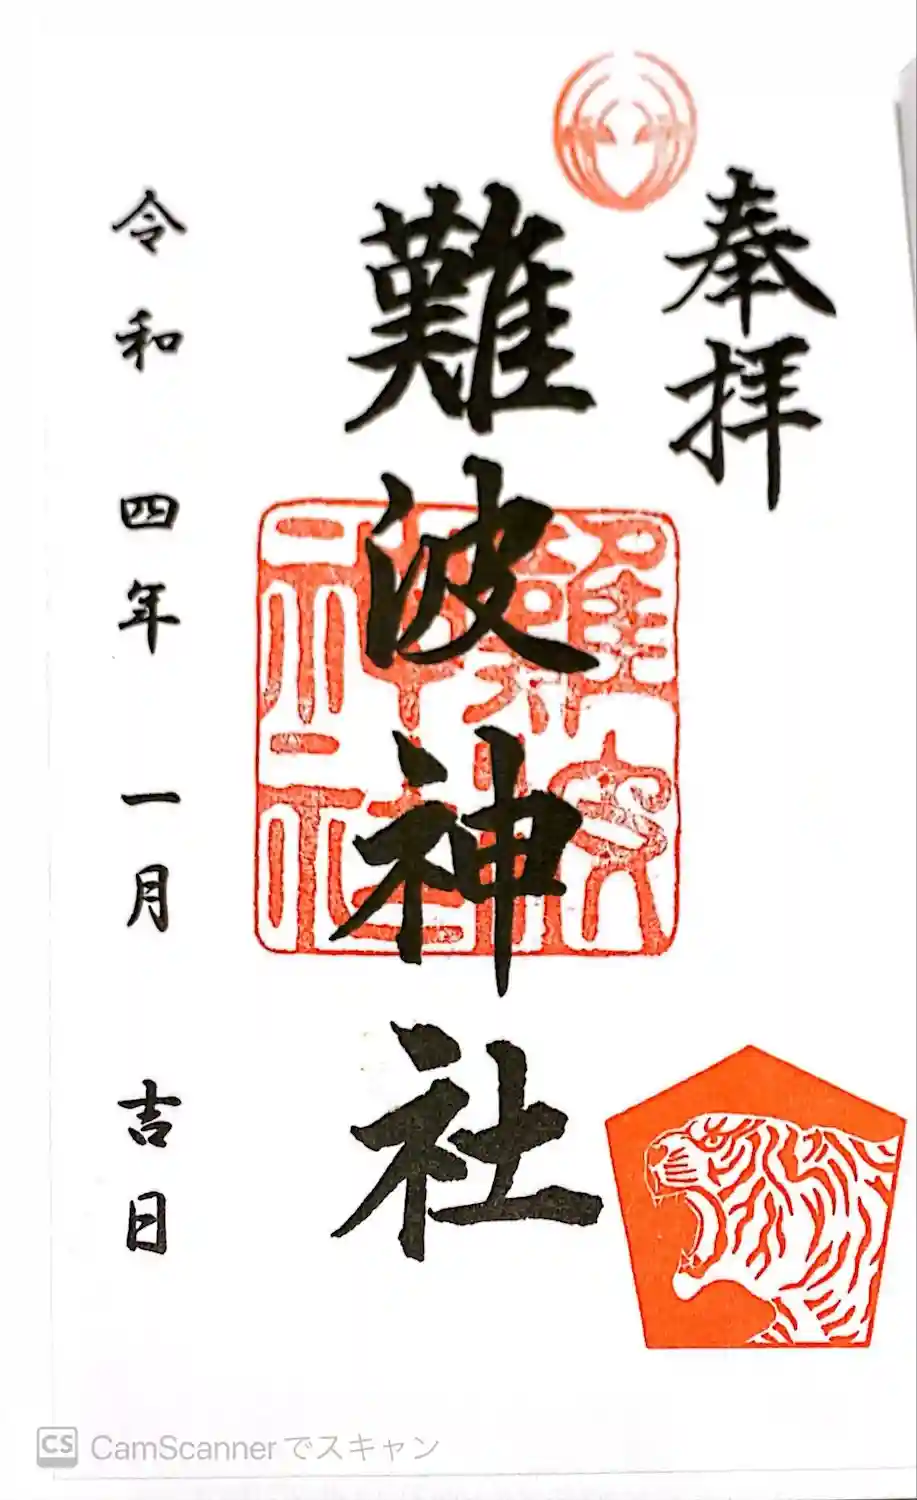 奉拝
難波神社
難波神社
令和四年一月吉日
CS CamScannerでスキャン